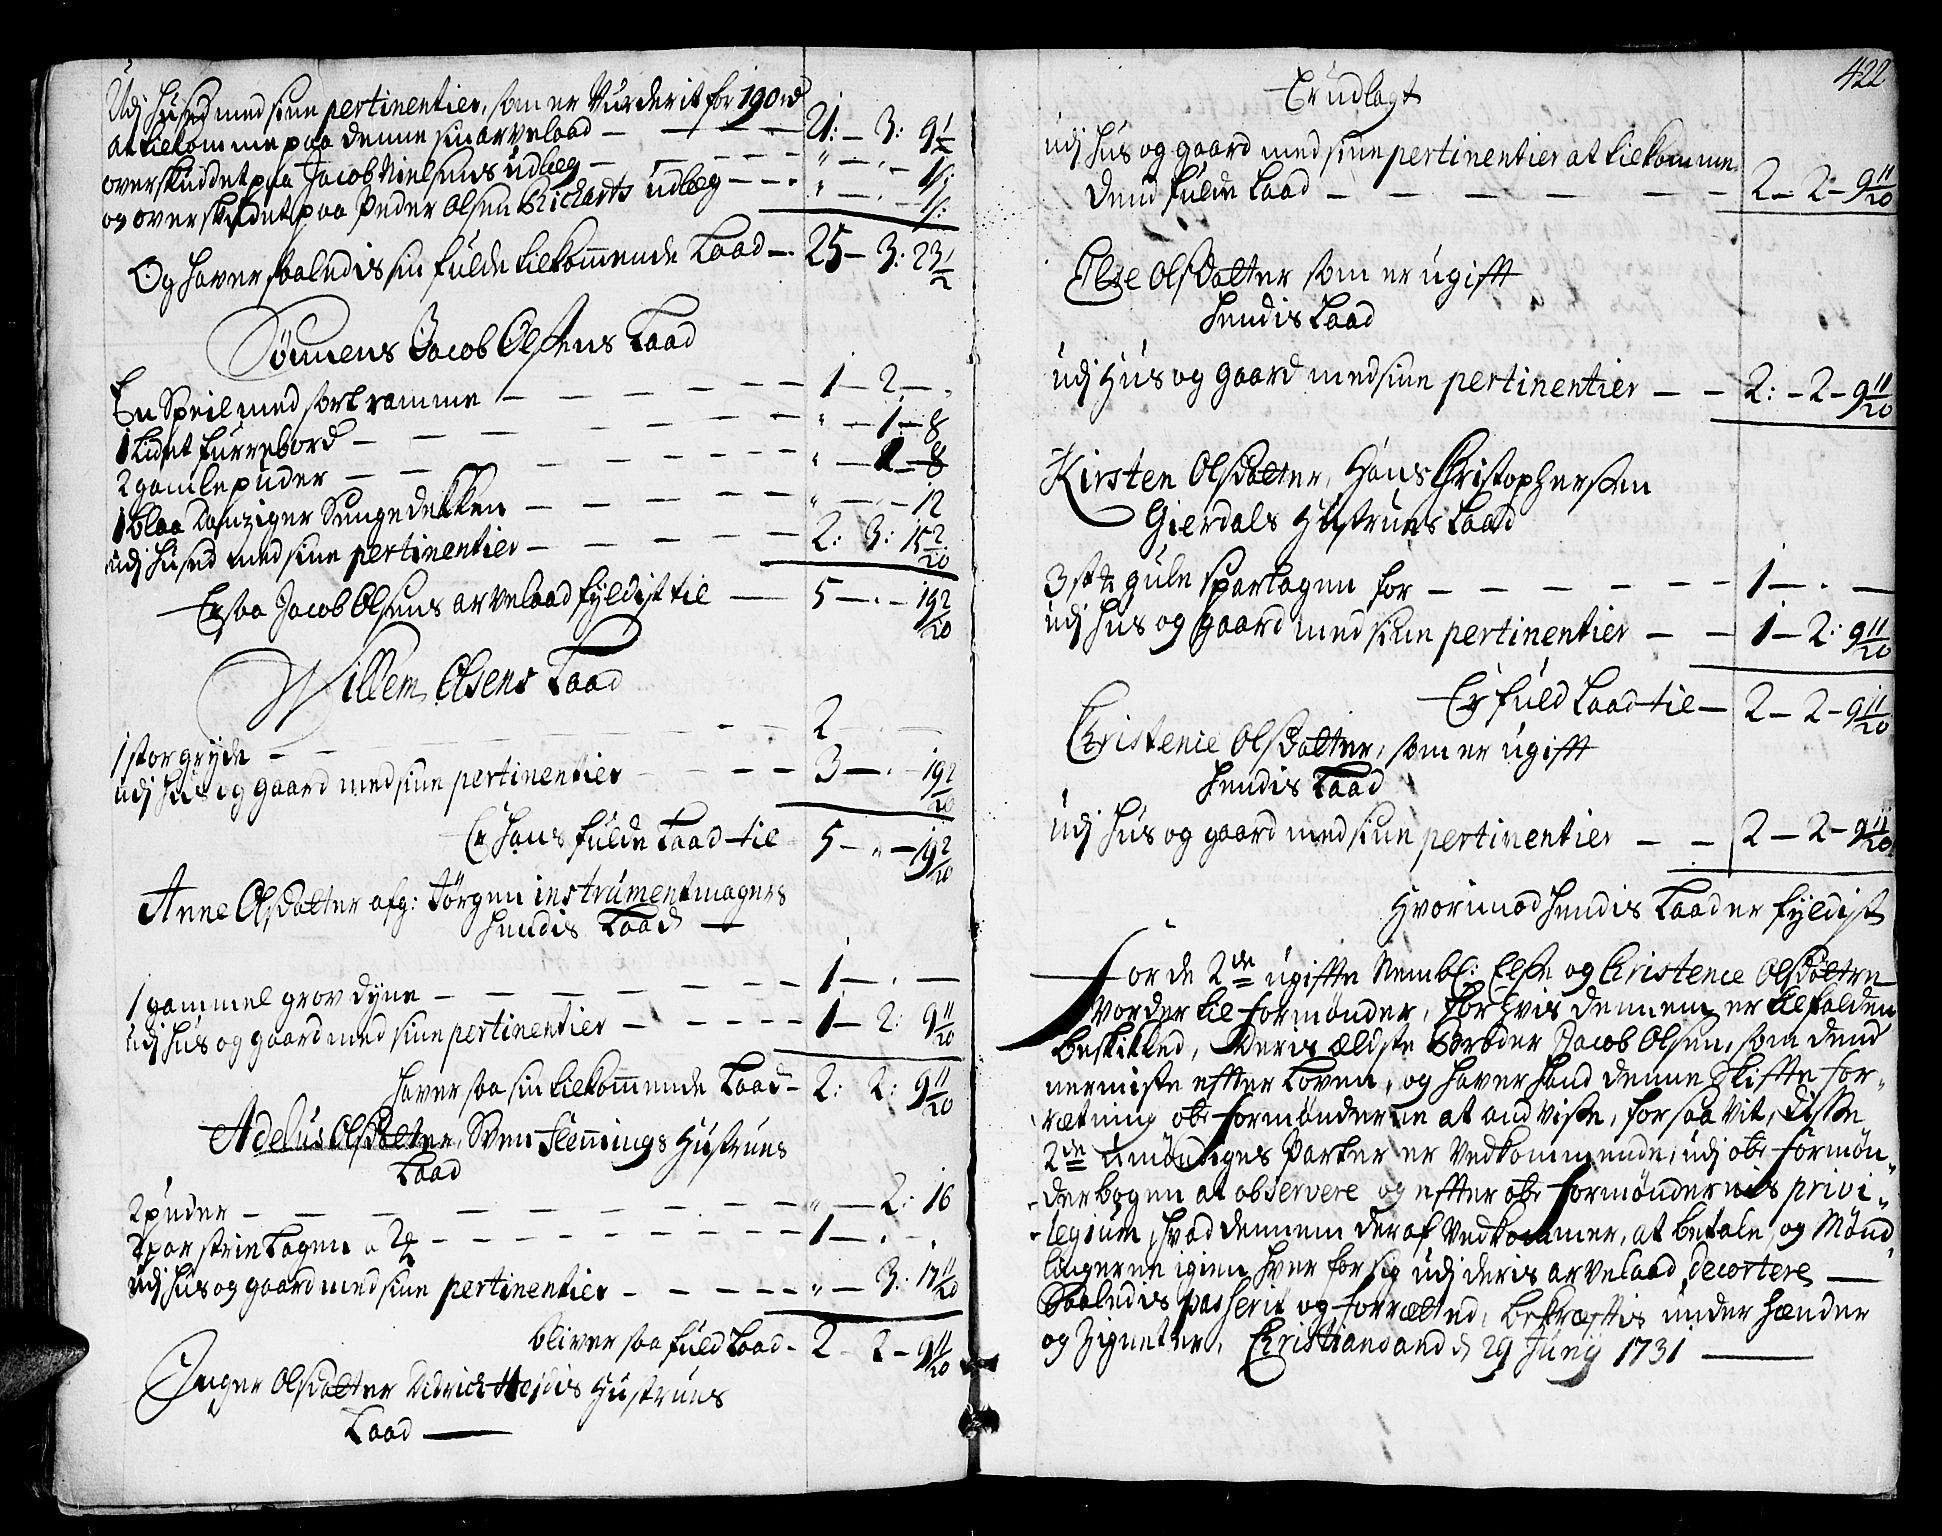 Udj Hused med sine pertinentier, som er Vurderit for 190 rd
at tilkomme paa denne sin arvelaad — — — — 21: — 3: 9 1/2
overskuddet paa Jacob Nielsens udlæg — — — — " — . — 1/:
og overskudet paa Peder Olsen Richarts udlæg — — — " — . — 1/:
Og haver saaledis sin fulde tilkommende Laad — 25 — 3: 23 1/2
Sønnens Jacob Olsens Laad
En Speil med sort ramme — — — — 1 — 2 — "
1 Lidet furrebord — — — — " — 1 — 8
2 gamle puder — — — — " — 1 — 8
1 blaa Danziger Sengedekken — — — — " — . — 12
udj Hused med sine pertinentier — — — — 2: 3: 15 2/20
Er saa Jacob Olsens arvelaad fyldist til — 5 — . — 19 2/20
Willem Olsens Laad
1 stor gryde — — — — 2 — . —
udj Hus og gaard med sine pertinentier — — — 3 — . — 19 2/20
Er hans fulde Laad til 5 — " — 19 2/20
Anne Olsdatter afg: Jørgen instrumentmagers
Hendis Laad —
1 gammel grov dyne — — — — 1 — . —
udj Hus og gaard med sine pertinentier — — — 1 — 2: 9 11/20
haver saa sin tilkommende Laad — 2: 2: 9 11/20
Adelus Olsdatter, Sven Flemmings Hustrues
Laad
2 puder — — — — " — 2: 16
2 par strie Lagen a 2 1/2 — — — — 1 — . — .
udj Hus og gaard med sine pertinentier — — — " — 3: 17 11/20
bliver saa fuld Laad — 2 — 2 — 9 11/20
Inger Olsdatter Didrich Hejdis Hustrues
Laad —
422
Er udlagt
udj Hus og gaard med sine pertinentier at tilkomme
dend fulde Laad — — — — 2 — 2 — 9 11/20
Else Olsdatter som er ugift
Hendis Laad
udj Hus og gaard med sine pertinentier — — 2: — 2 — 9 11/20
Kirsten Olsdatter, Hans Christophersen
Gierdals Hustrues Laad
3 st: gule sparlagen for — — — — 1 — . —
udj Hus og gaard med sine pertinentier — — 1 — 2: 9 11/20
Er fuld Laad til — 2 — 2 — 9 11/20
Christence Olsdatter, som er ugift
Hendis Laad
udj Hus og gaard med sine pertinentier — — 2 — 2 — 9 11/20
Hvorimod Hendis Laad er fyldist
For de 2de ugifte Nembl: Else og Christence Olsdøtre
Vorder til formønder, for hvis dennem er tilfalden
beskikked, Deris ældste Broder Jacob Olsen, som dend
nermiste efter Loven, og haver Hand denne Skifte for-
rætning obr formønderne at andvise, for saa vit, disse
2de umøndiges Parter er Vedkommende, udj obr formøn-
derbogen at observere og efter obr formøndernis privi-
legium, hvad dennem deraf Vedkommer, at betale, og Mønd
lingerne igien hver for sig udj deris arvelaad decortere —
Saaledis passerit og forrætted, bekræftis under Hænder
og Zigneter, Christiansand d 29 Junij 1731 —